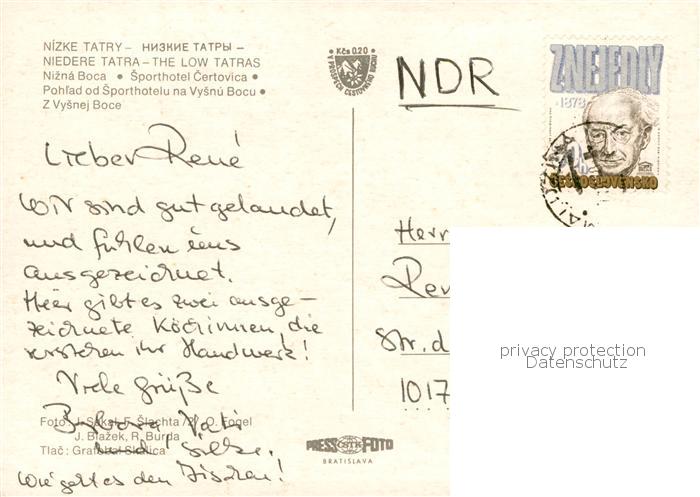 NÍZKE TATRY – НИЗКИЕ ТАТРЫ –
NIEDERE TATRA – THE LOW TATRAS
Nižná Boca ● Športhotel Čertovica ●
Pohľad od Športhotelu na Vyšnú Bocu ●
Z Vyšnej Boce
Kčs 0.20
V PROSPECH CESTOVNÉHO RUCHU
NDR
Z NEJEDLÝ
1878
ČESKOSLOVENSKO
Lieber René
Wir sind gut gelandet,
und fühlen uns
ausgezeichnet.
Hier gibt es zwei ausge-
zeichnete Köchinnen, die
verstehen ihr Handwerk!
Viele Grüße
Barbara, Vati
und Silke.
Wie geht es den Fischen!
Foto: J. Sakal, F. Šlachta /2/, O. Fogel
J. Blažek, R. Burda
Tlač: Grafobal Skalica
Herr
Str. d
1017
PRESSFOTO
ČSTK
BRATISLAVA
privacy protection
Datenschutz